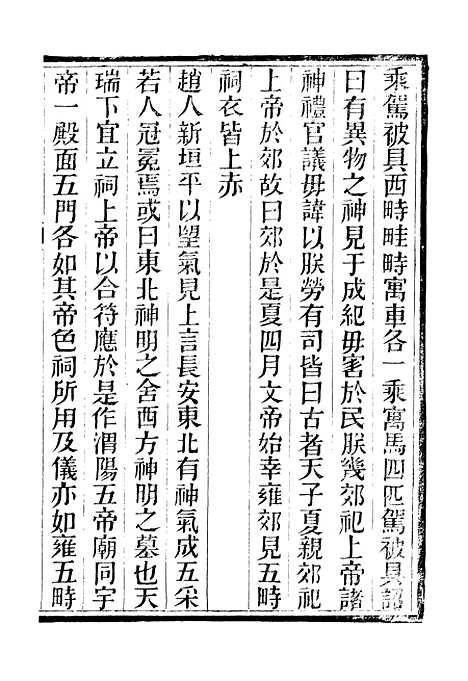 乘駕被具西畤畦畤寓車各一乘寓馬四匹駕被具詔
曰有異物之神見于成紀毋害於民朕幾郊祀上帝諸
神禮官議毋諱以朕勞有司皆曰古者天子夏親郊祀
上帝於郊故曰郊於是夏四月文帝始幸雍郊見五畤
祠衣皆上赤
趙人新垣平以望氣見上言長安東北有神氣成五采
若人冠冕焉或曰東北神明之舍西方神明之墓也天
瑞下宜立祠上帝以合符應於是作渭陽五帝廟同宇
帝一殿面五門各如其帝色祠所用及儀亦如雍五畤